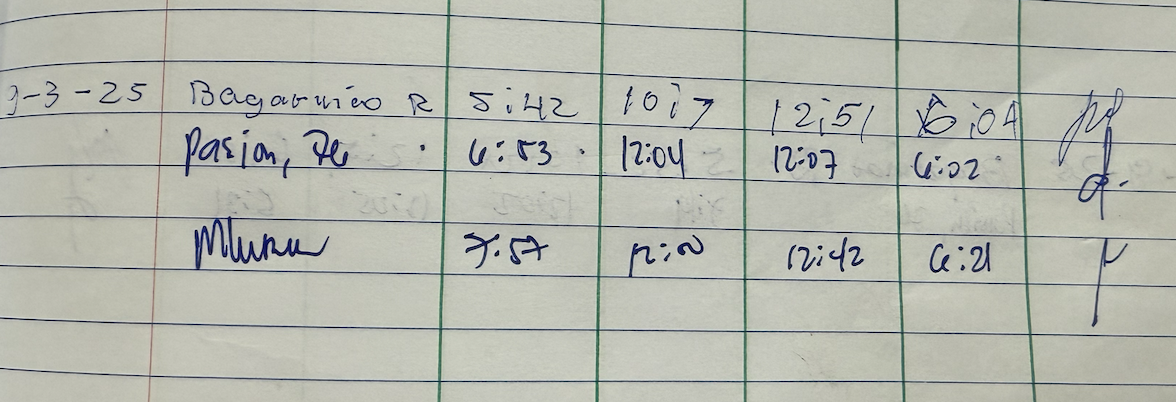 9-3-25 Bagarnião R 5:42 10:7 12:51 6:04
Pasion, 6:53 12:04 12:07 6:02
7:57 12:00 12:42 6:21